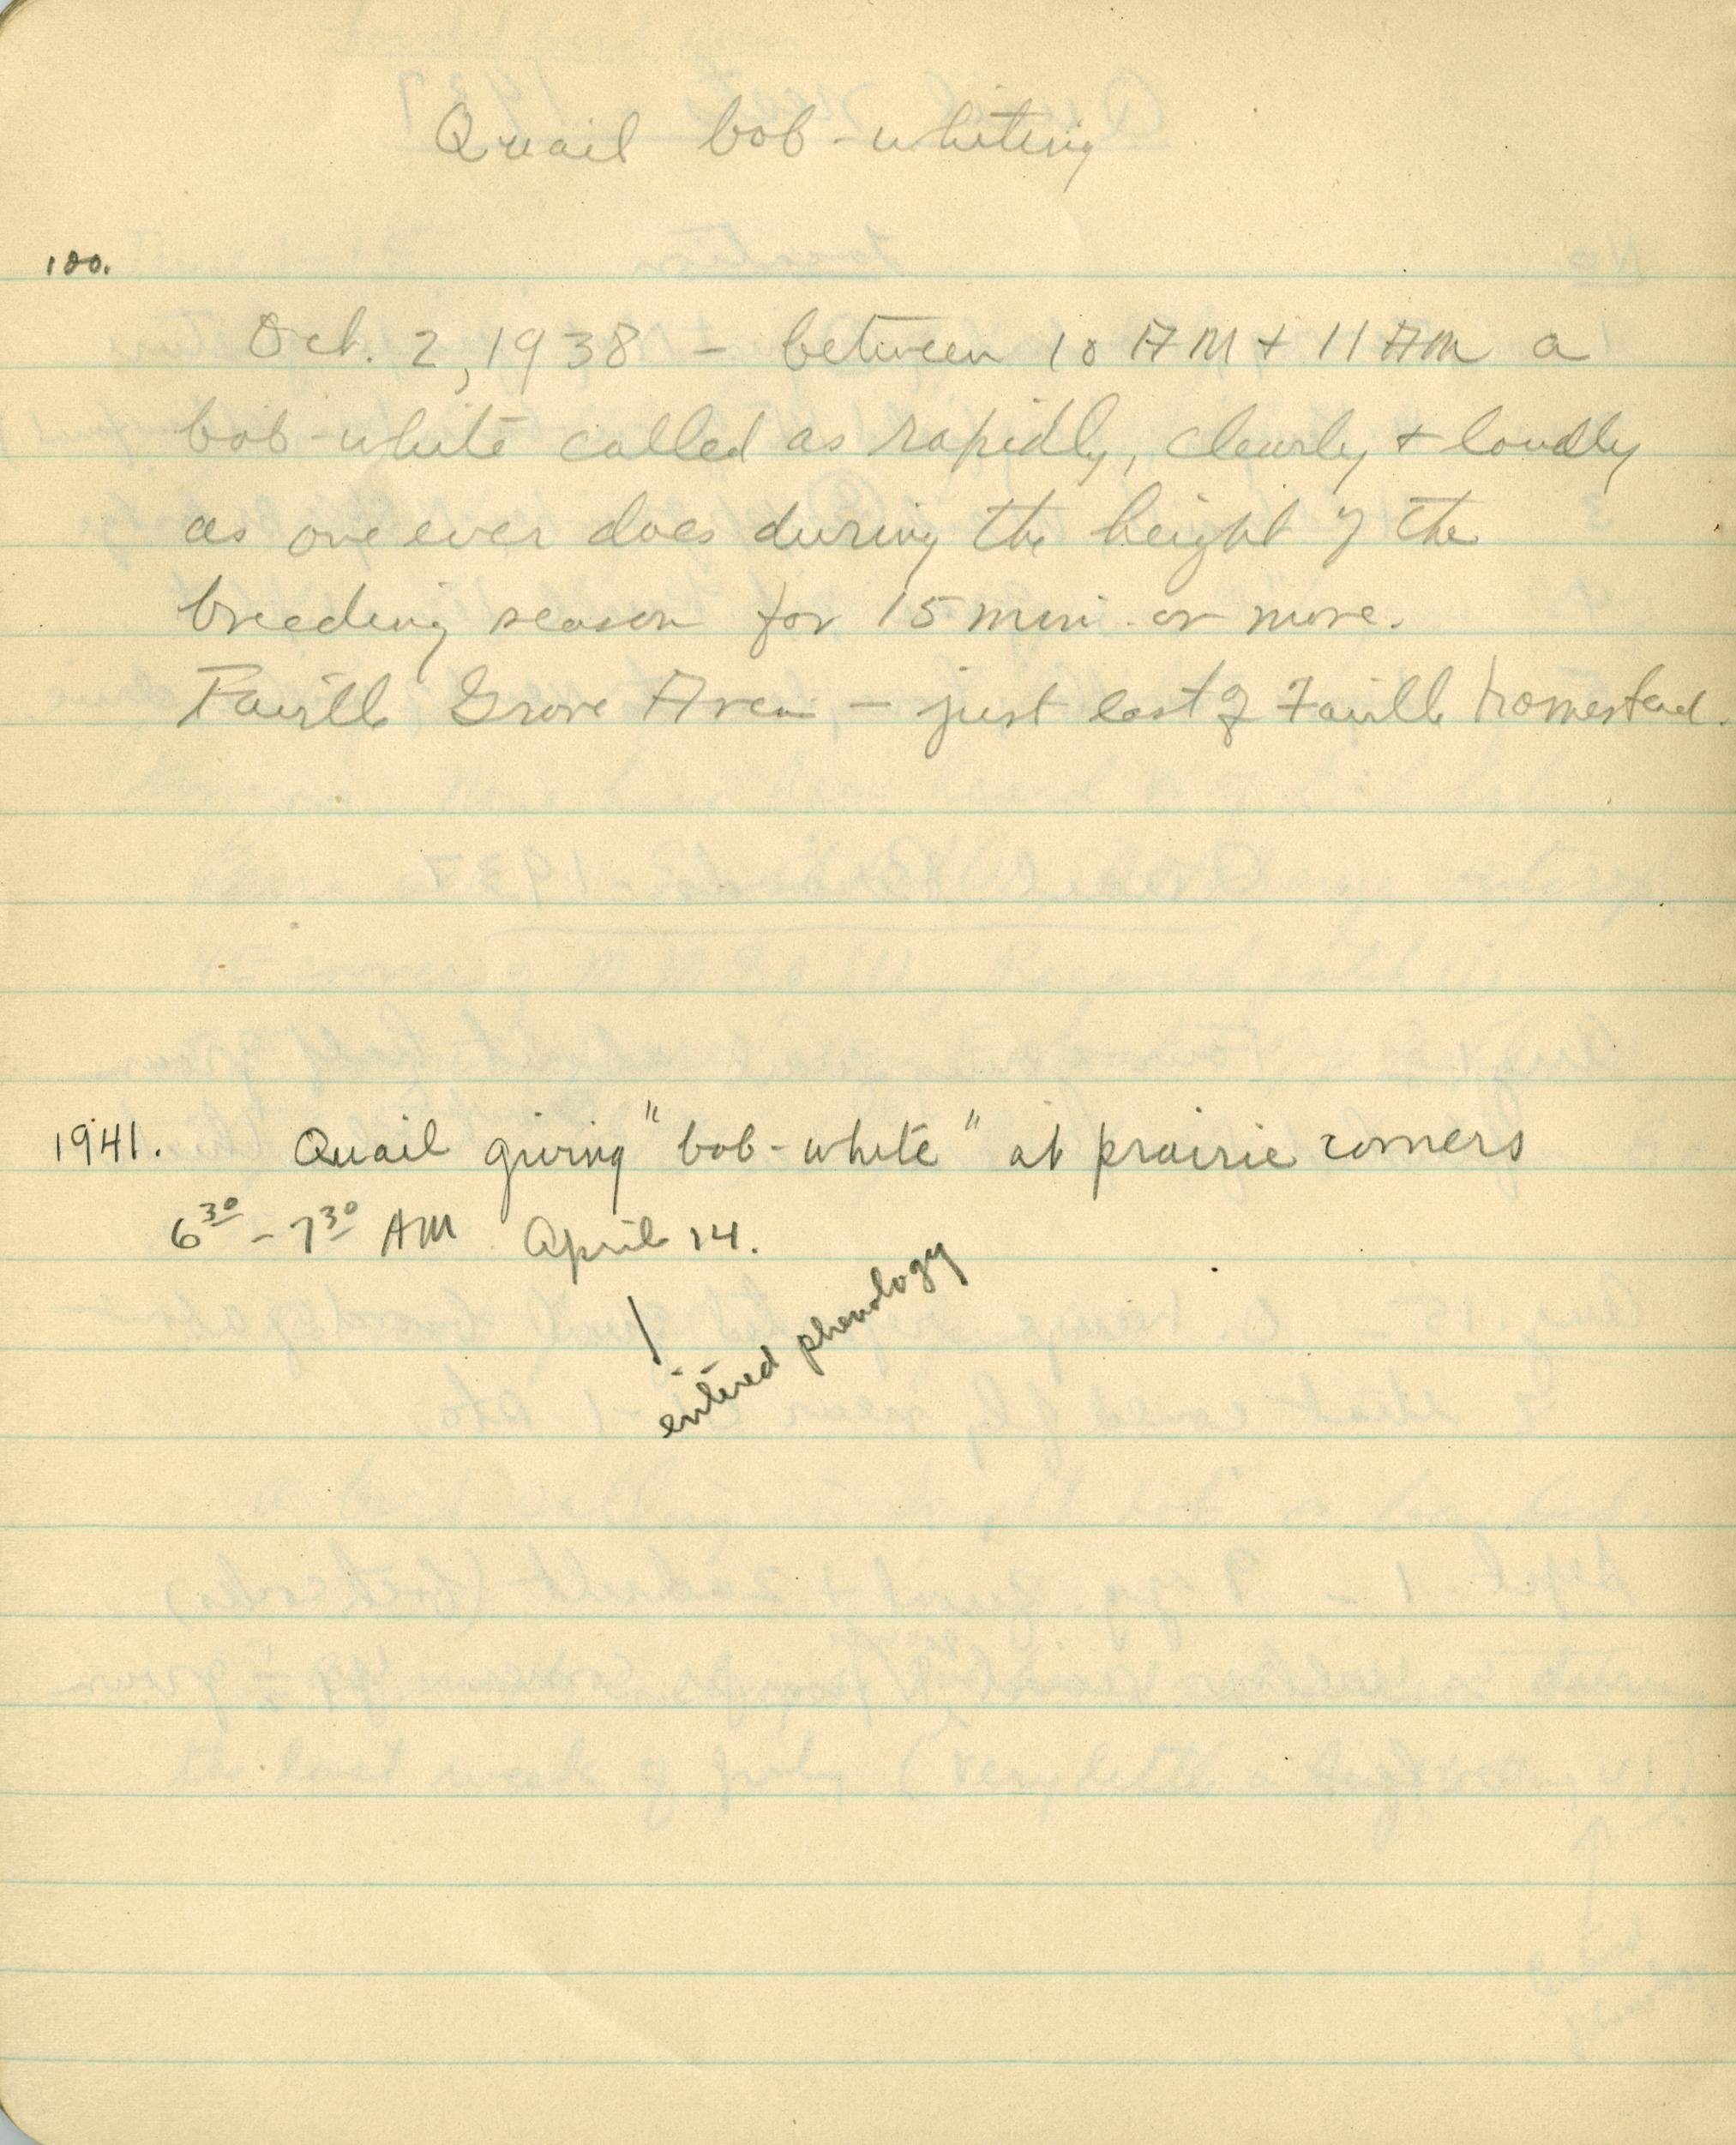 Quail bob-whiting
100.
Oct. 2, 1938 - between 10 AM + 11 AM a
bob-white called as rapidly, clearly + loudly
as one ever does during the height of the
breeding season for 15 min. or more.
Faville Grove Area - just east of Faville homestead.
1941. Quail giving "bob-white" at prairie corners
6 30 - 7 30 AM April 14.
entered phenology